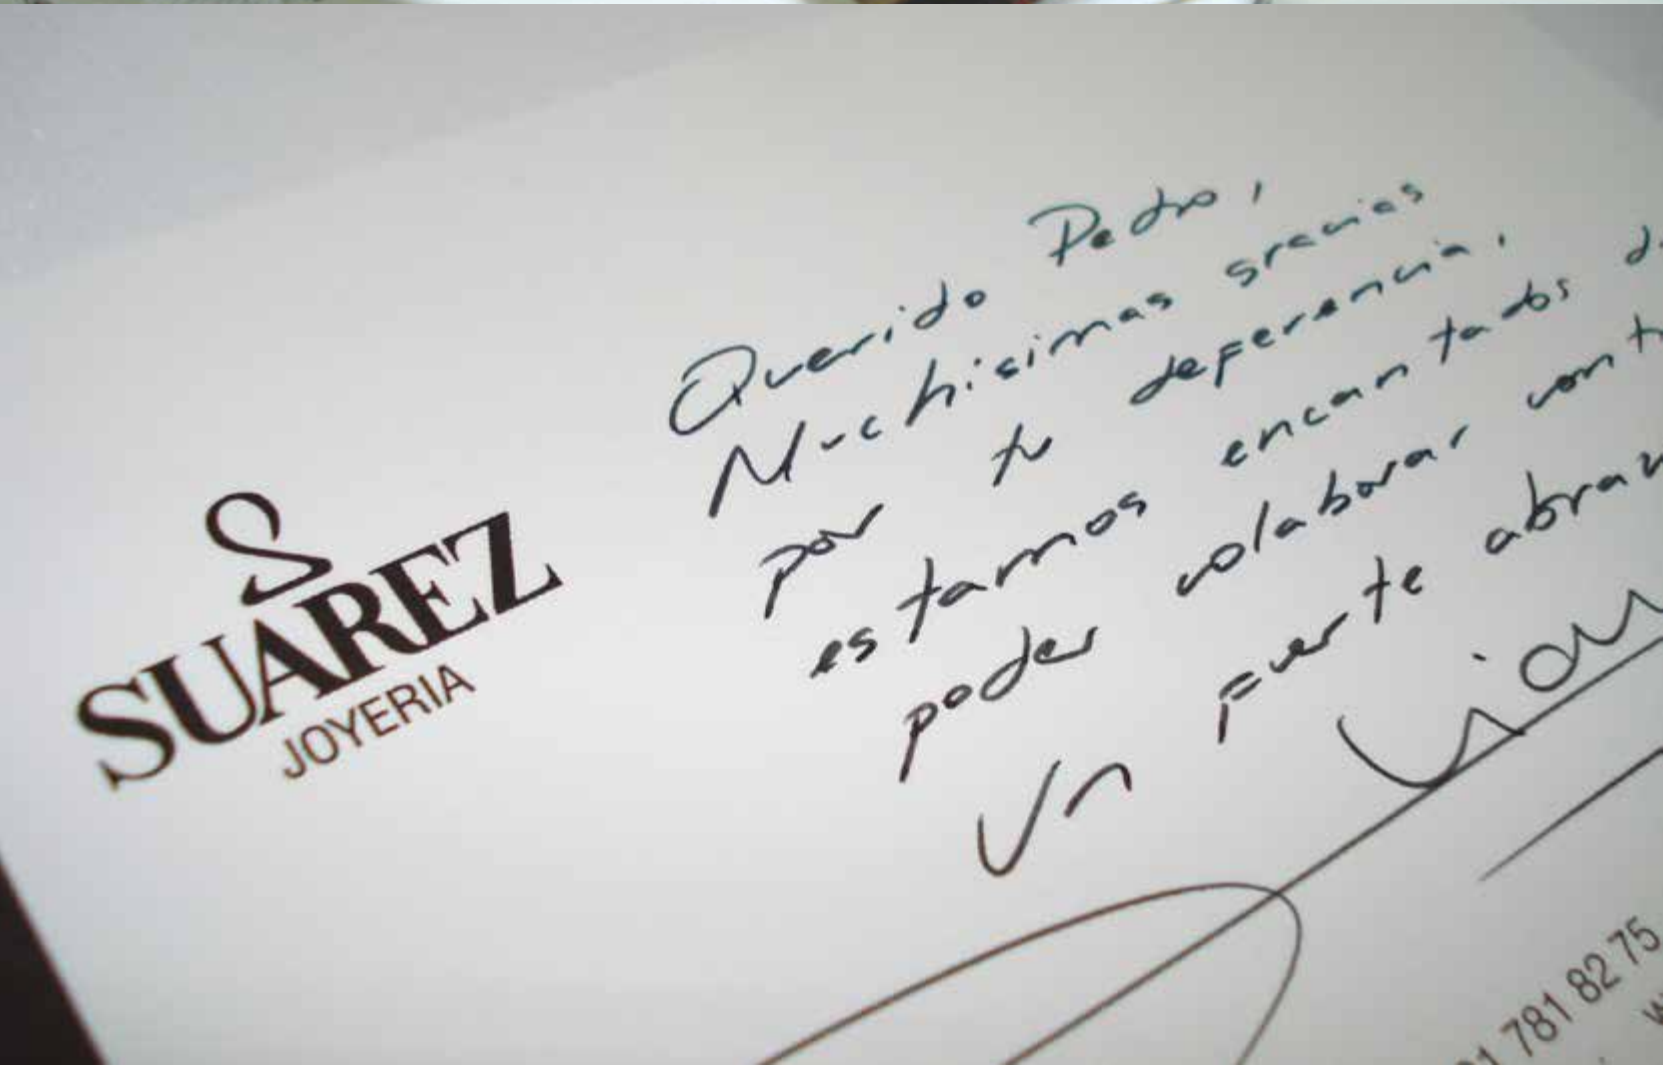 SUAREZ
JOYERIA
Querido Pedro,
Muchisimas gracias
por tu deferencia,
estamos encantados
poder colaborar
Un fuerte
781 82 75